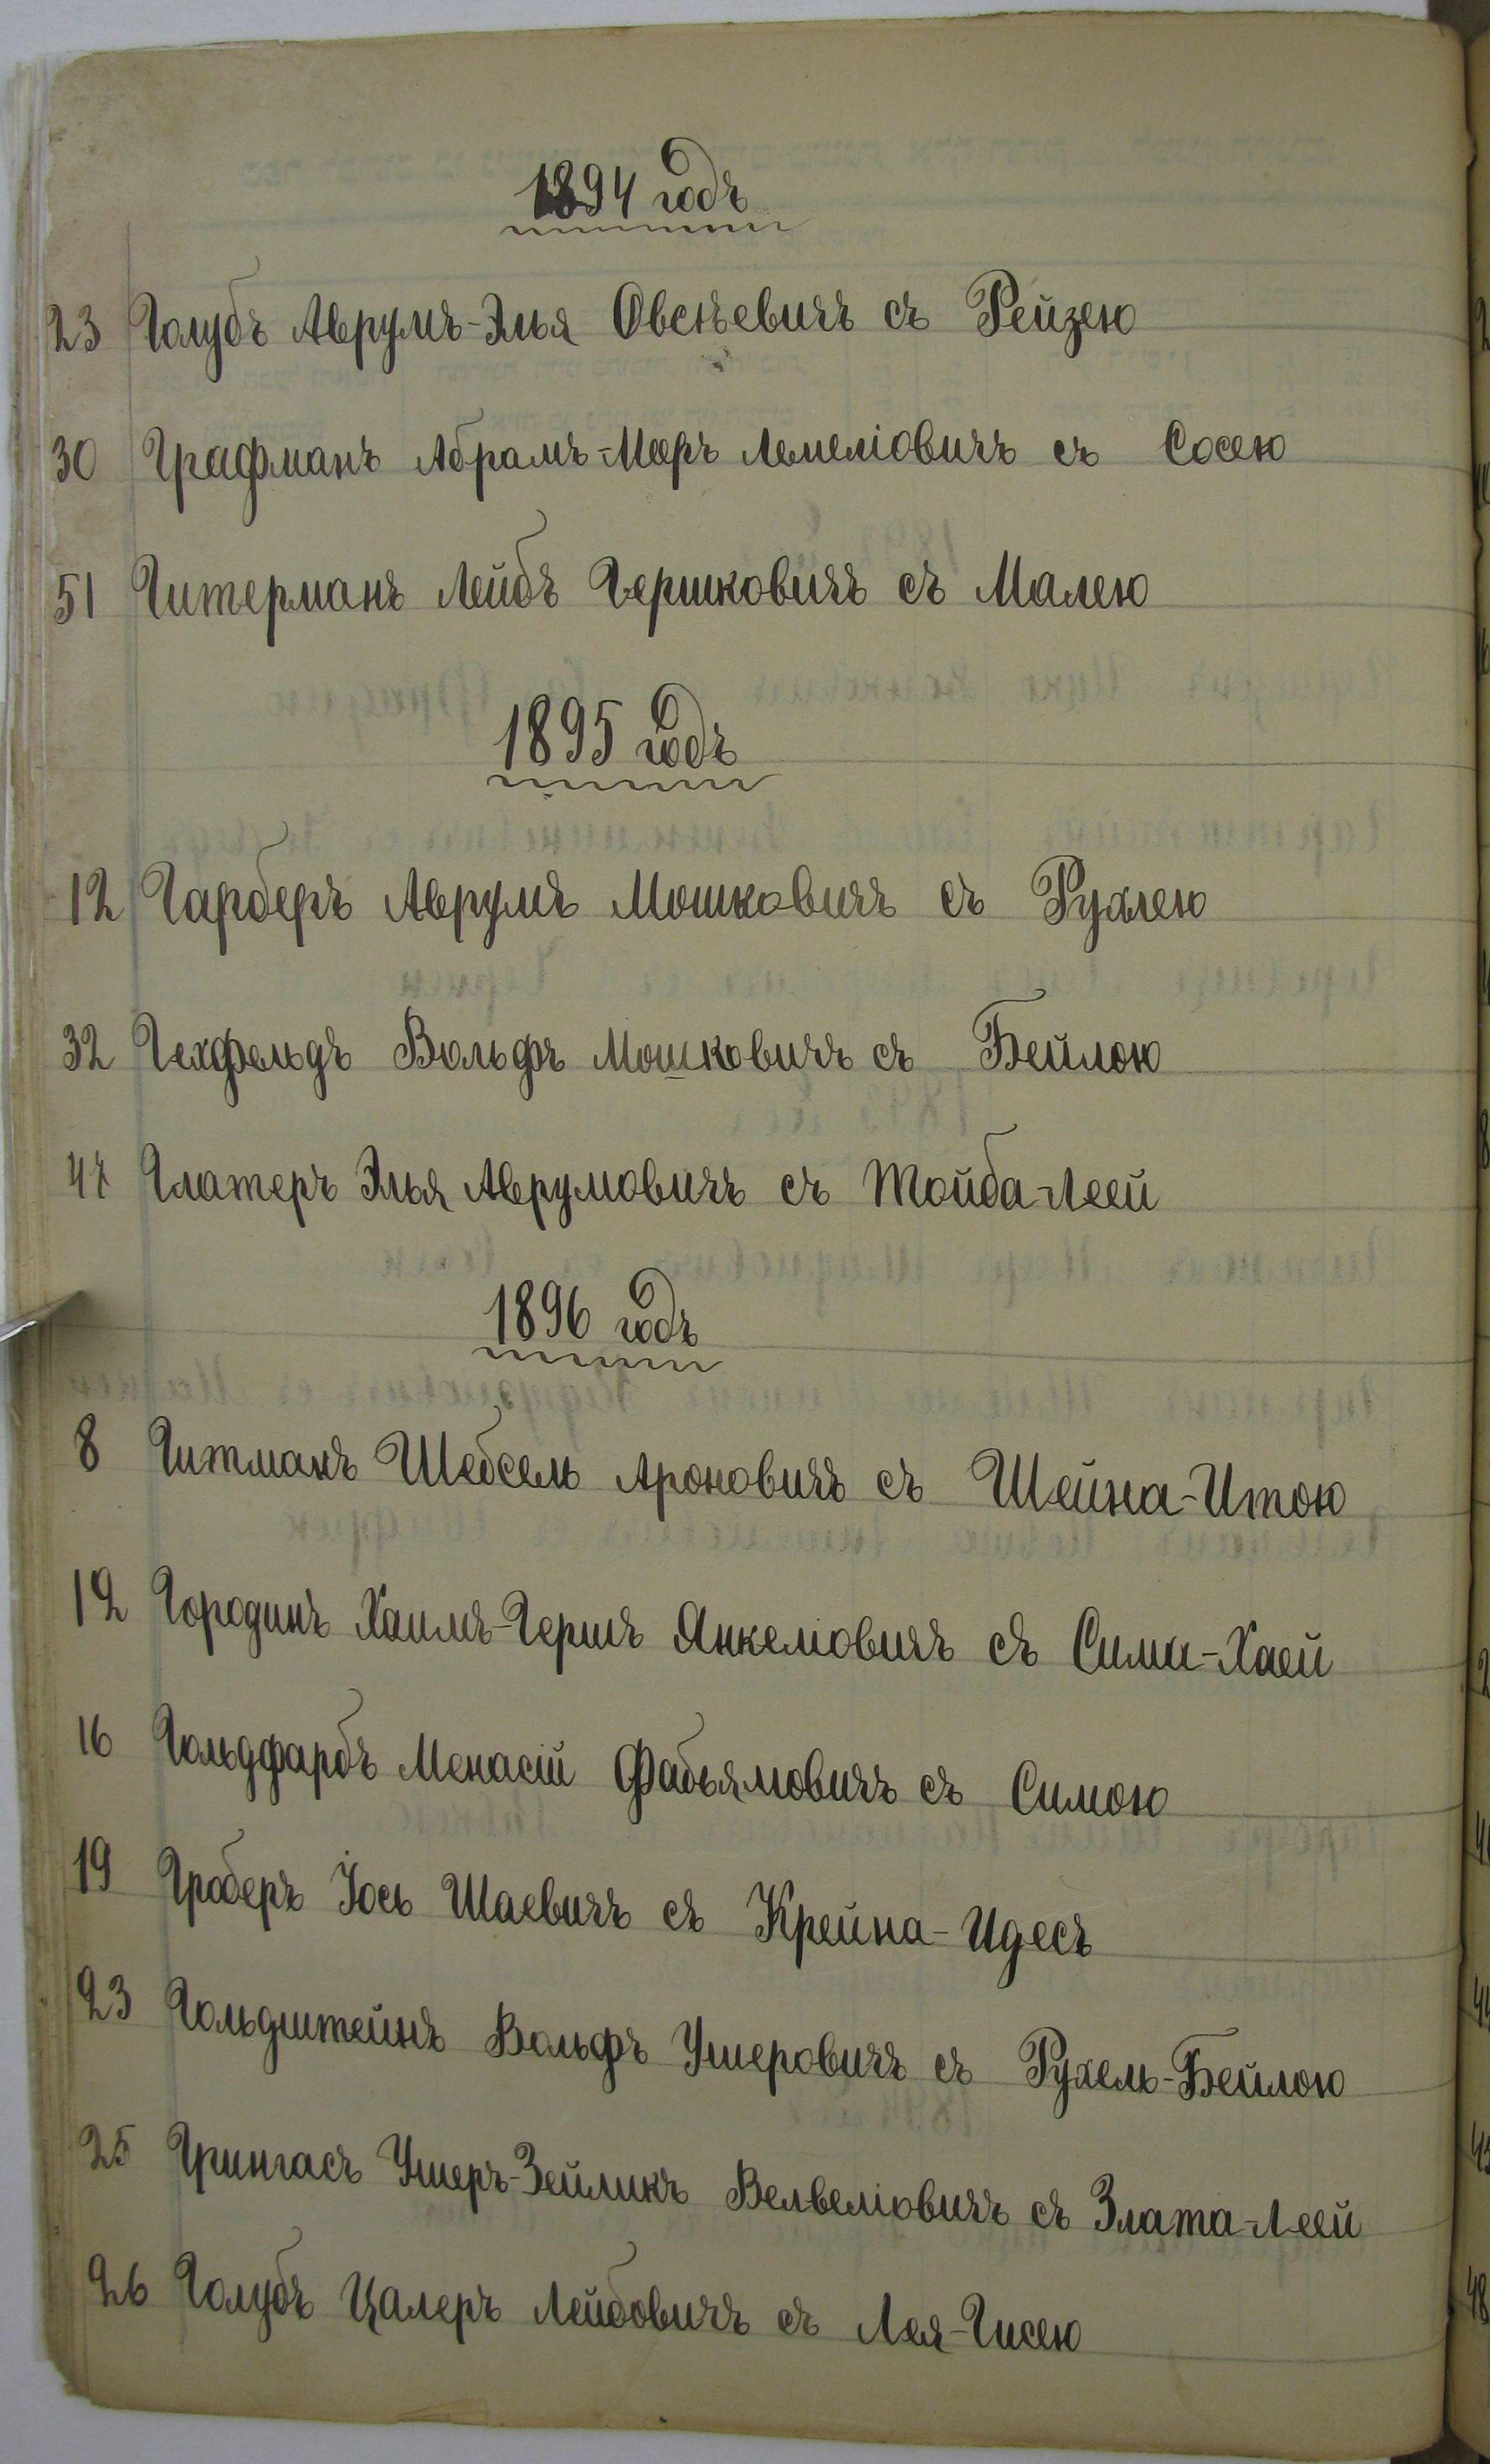 1894 годъ
23 Голубъ Аврумъ-Элья Овсѣевичъ съ Рейзею
30 Графманъ Абрамъ-Меръ Лемеліовичъ съ Сосею
51 Гитерманъ Лейбъ Гершковичъ съ Малею
1895 годъ
12 Гарберъ Аврумъ Мошковичъ съ Рухлею
32 Гехфельдъ Вольфъ Мошковичъ съ Бейлою
47 Глатеръ Элья Аврумовичъ съ Тойба-Леей
1896 годъ
8 Гитманъ Шебсель Ароновичъ съ Шейна-Итою
12 Городинъ Хаимъ-Гершъ Янкеліовичъ съ Сима-Хаей
16 Гольдфарбъ Менасій Фабьямовичъ съ Симою
19 Гроберъ Іось Шаевичъ съ Крейна-Идесъ
23 Гольдштейнъ Вольфъ Ушеровичъ съ Рухель-Бейлою
25 Грингасъ Ушеръ-Зейликъ Велвеліовичъ съ Злата-Леей
26 Голубъ Цалеръ Лейбовичъ съ Лея-Гисею